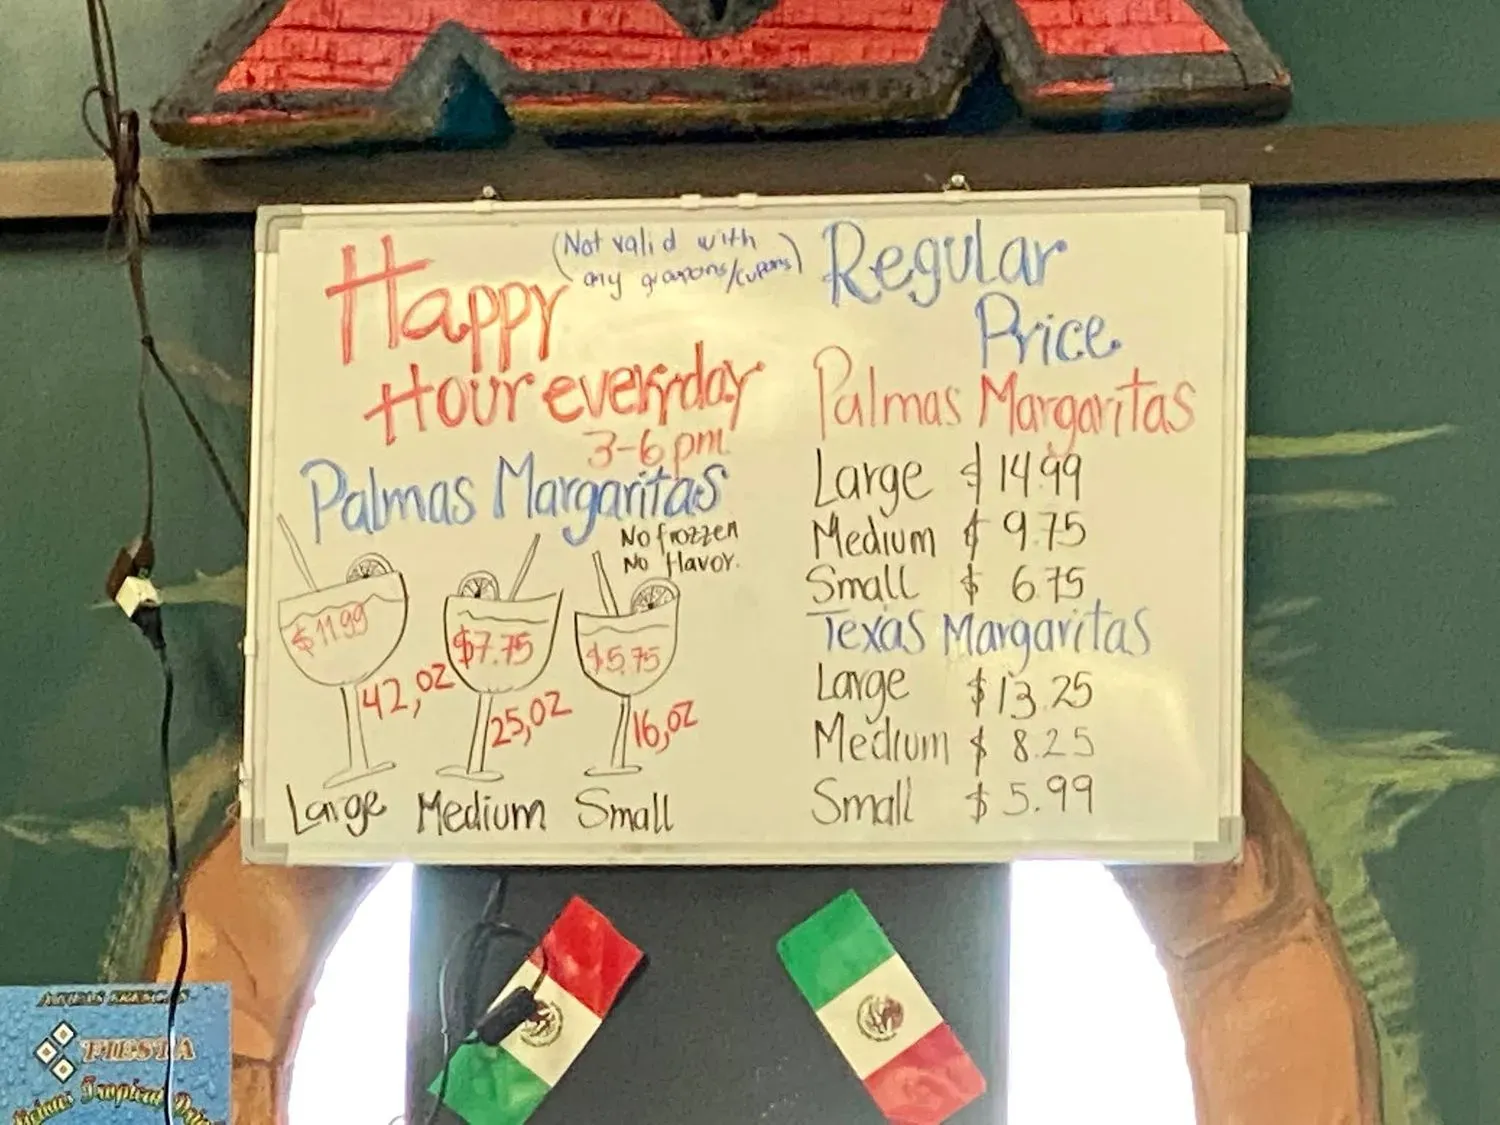 Happy
(Not valid with
any groupons/cupons)
Hour everyday
3-6 pm
Palmas Margaritas
No frozzen
No flavor.
$11.99
$7.75
$5.75
42,oz
25,oz
16,oz
Large Medium Small
Regular
Price
Palmas Margaritas
Large $14.99
Medium $9.75
Small $6.75
Texas Margaritas
Large $13.25
Medium $8.25
Small $5.99
FIESTA
Tropical